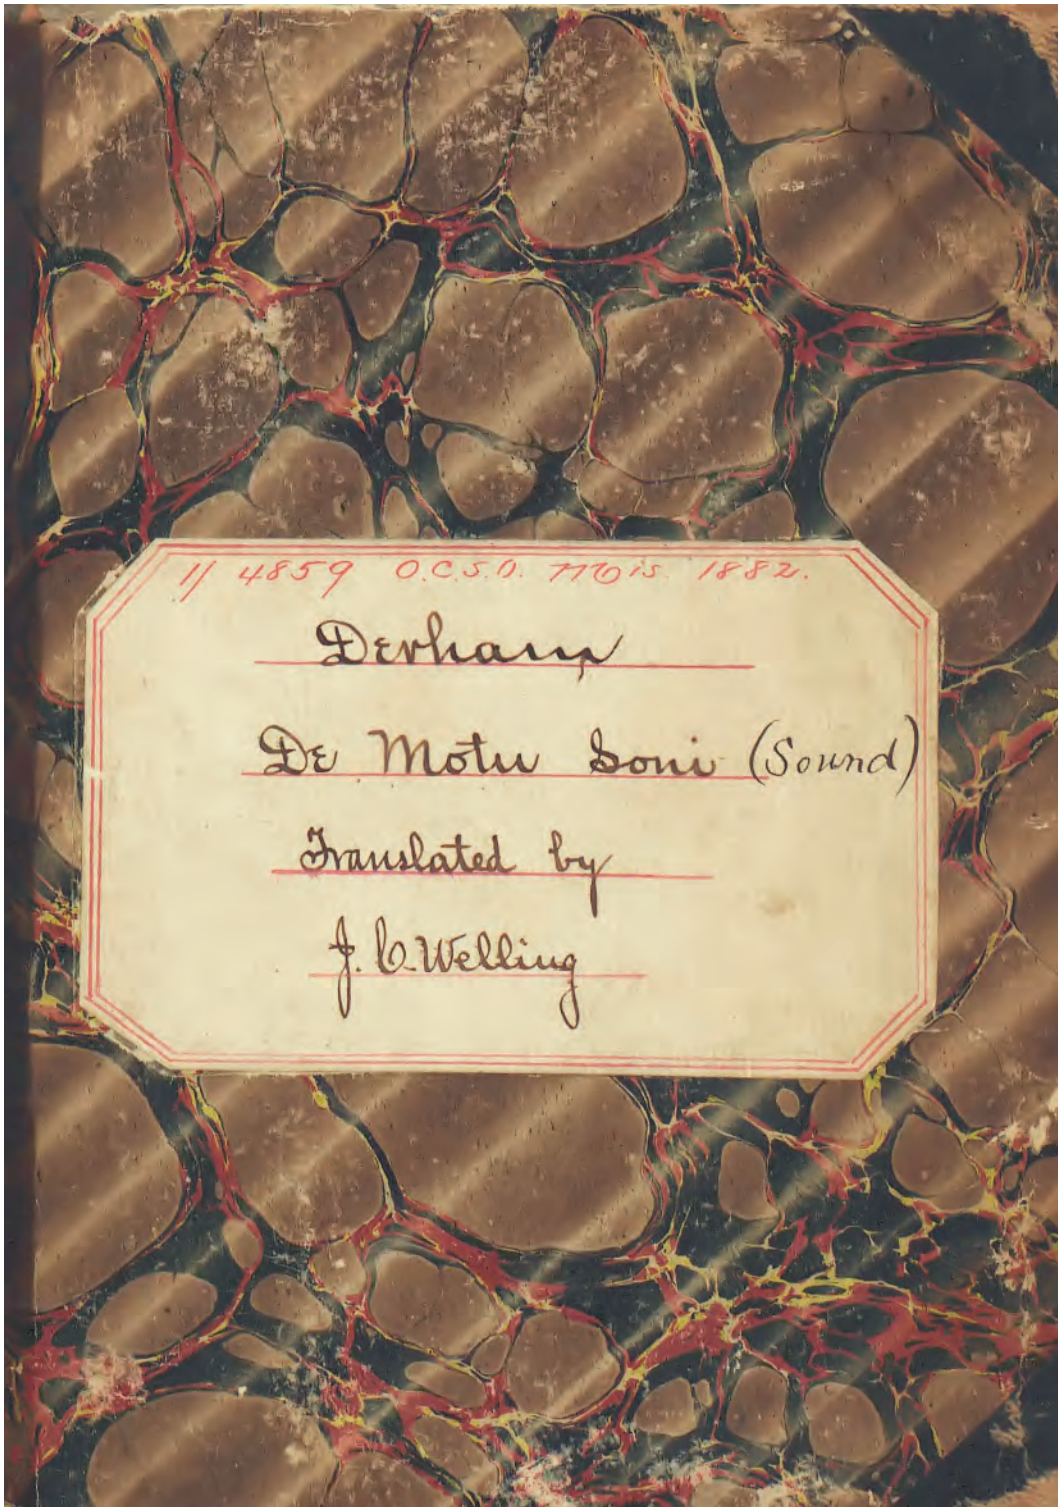 4859 O.C.S.O. Mis. 1882.
Derham
De Motu Soni (Sound)
Translated by
J. C. Welling